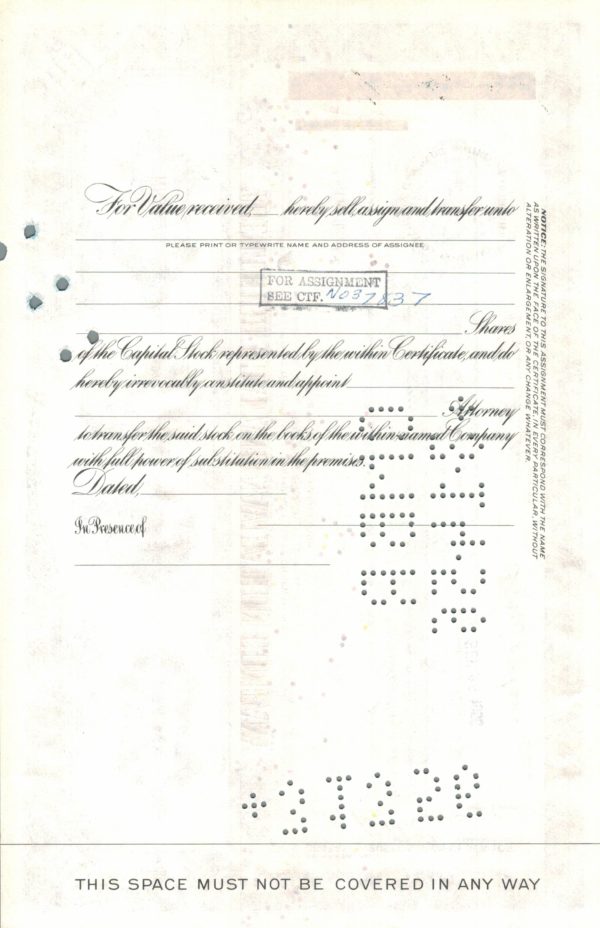 For Value received, hereby sell, assign and transfer unto
PLEASE PRINT OR TYPEWRITE NAME AND ADDRESS OF ASSIGNEE
FOR ASSIGNMENT
SEE CTF. NO37837
Shares
of the Capital Stock represented by the within Certificate, and do
hereby irrevocably constitute and appoint
Attorney
to transfer the said stock on the books of the within-named Company
with full power of substitution in the premises.
Dated,
In Presence of
NOTICE: THE SIGNATURE TO THIS ASSIGNMENT MUST CORRESPOND WITH THE NAME
AS WRITTEN UPON THE FACE OF THE CERTIFICATE, IN EVERY PARTICULAR, WITHOUT
ALTERATION OR ENLARGEMENT, OR ANY CHANGE WHATEVER.
THIS SPACE MUST NOT BE COVERED IN ANY WAY